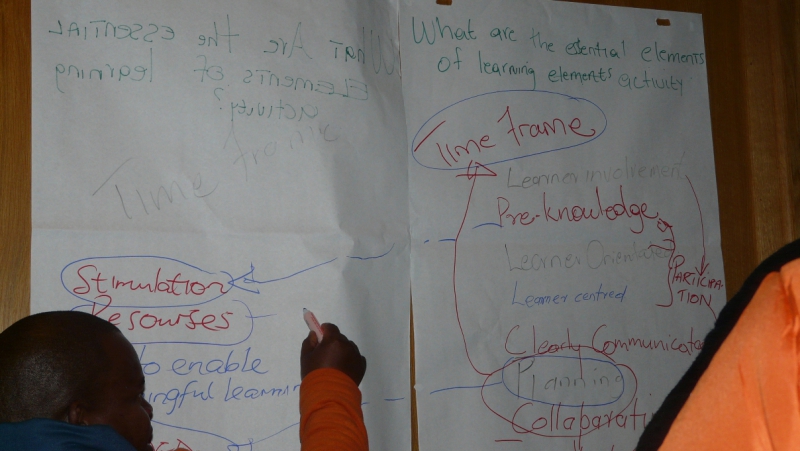 What Are the ESSENTIAL
ELEMENTS OF learning
activity?
Time frame
Stimulation
Resourses
to enable
ngful learnin
What are the essential elements
of learning elements activity
Time frame
Learner involvement
Pre-knowledge
Learner Orientated
Learner centred
PARTICIPA-
TION
Clearly Communicated
Planning
Collaparati